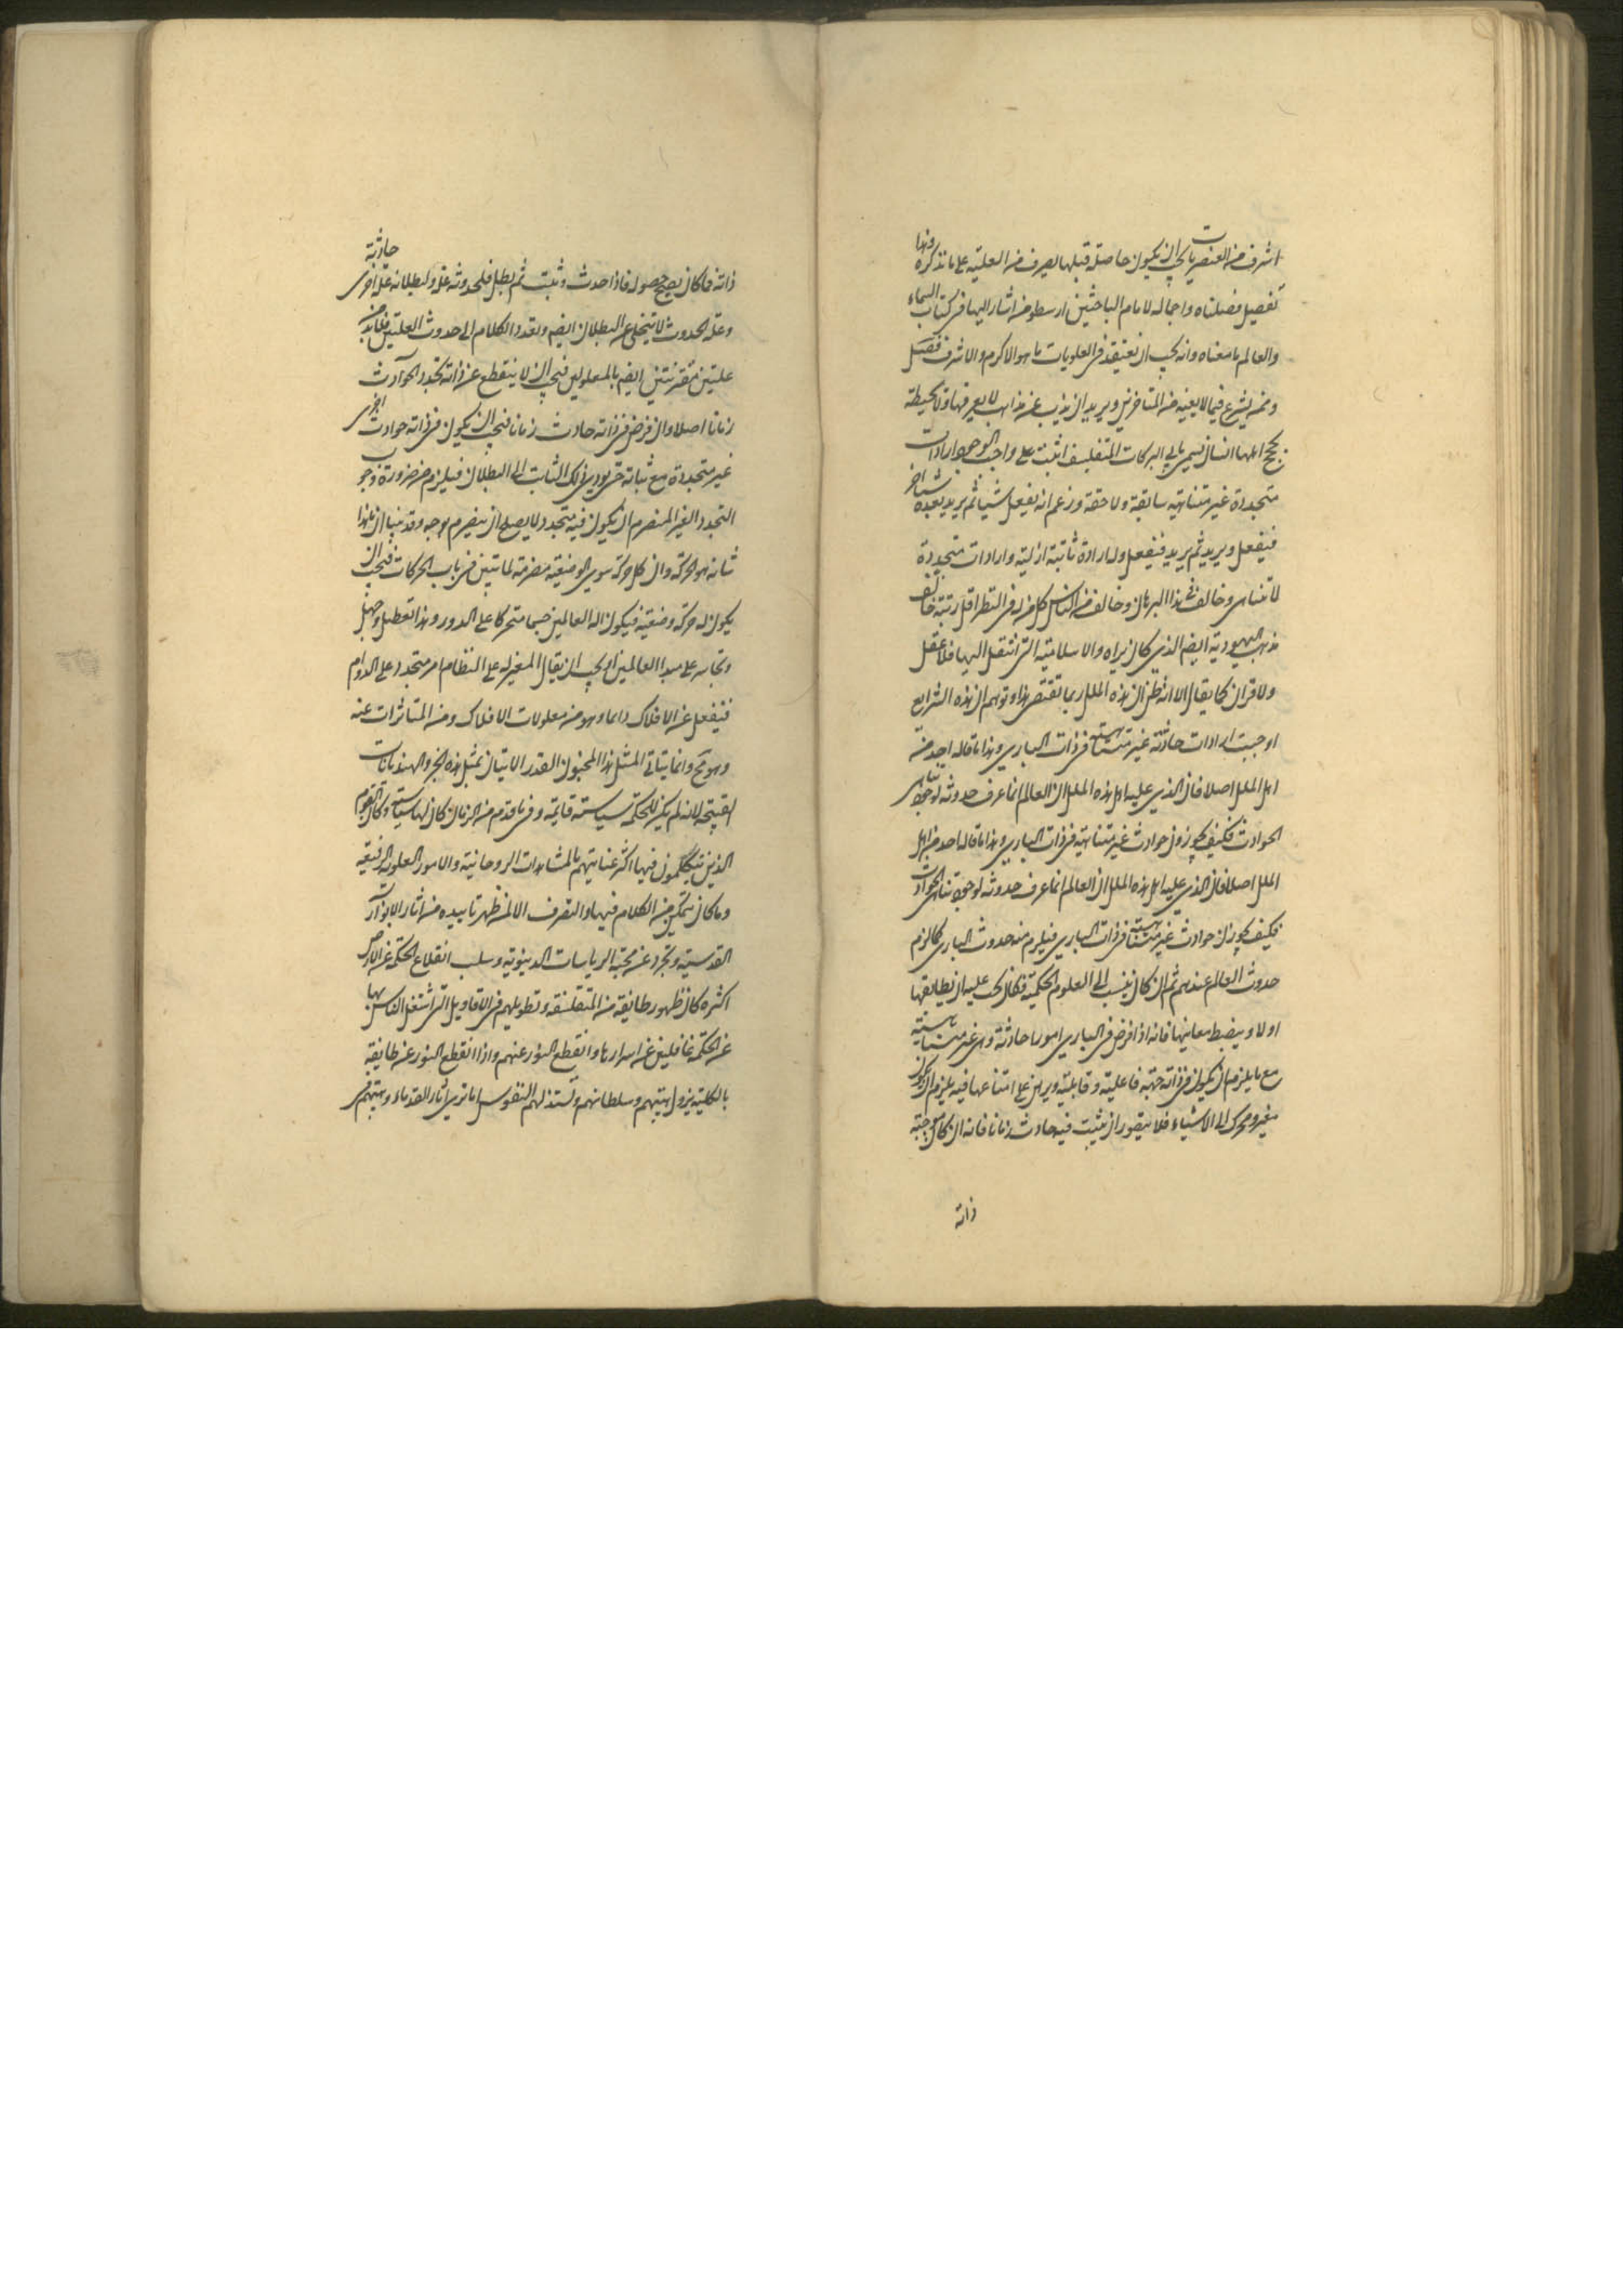 اشرف من العنصريات يجب ان يكون حاصلة قبلها يصرف من العلية على ما نذكره وهذا
تفصيل فصلناه واجماله لامام الباحثين ارسطو من اشار اليها فى كتاب السماء
والعالم ما معناه وانه يجب ان نعتقد فى العلويات ما هو الاكرم والاشرف فصل
وممن يشرع فيما لا يعنيه من المتاخرين ويريد ان يذب عن مذاهب لا يعرفها ولا يحيط
بحجج اهلها انسان يسمى بابى البركات المتفلسف اثبت على واجب الوجود ارادات
متجددة غير متناهية سابقة ولاحقة وزعم انه يفعل شيئا ثم يريد بعده شيئا اخر
فيفعل ويريد ثم يريد فيفعل وله ارادة ثابتة ازلية وارادات متجددة
لا تتناهى وخالف فى هذا البرهان وخالف من الناس كل من له فى النظر اقل رتبة خالف
مذهب اليهودية ايضا الذى كان يراه والاسلامية التى انتقل اليها فلا عقل
ولا قران كما يقال الا انه ظن ان هذه الملل ربما تقتضى هذا وتوهم ان هذه الشرايع
اوجبت ارادات حادثة غير متناهية فى ذات البارى وهذا ما قاله احد من
اهل الملل اصلا فان الذى عليه اهل هذه الملل ان العالم انما عرف حدوثه لوجوب تناهى
الحوادث فكيف يجوزون حوادث غير متناهية فى ذات البارى وهذا ما قاله احد من اهل
الملل اصلا فان الذى عليه اهل هذه الملل ان العالم انما عرف حدوثه لوجوب تناهى الحوادث
فكيف يجوزان حوادث غير متناهية فى ذات البارى فيلزم منه حدوث البارى كما لزم
حدوث العالم عندهم ثم ان كان ينسب الى العلوم الحكمية فكان يجب عليه ان يطابقها
اولا ويضبط معانيها فانه اذا فرض فى البارى امورا حادثة وهى غير متناهية
مع ما يلزم ان يكون فى ذاته جهة فاعلية وقابلية وبرهن على امتناعها فيه يلزم ان يكون
مغير ومحرك الى الاشياء فلا يتصور ان يثبت فيه حادث زمانا فانه ان كان موجبه
ذاته
ذاته فما كان يصح حصوله فاذا حدث وثبت ثم بطل فلحدوثه علة ولبطلانه علة اخرى حادثة
وعلة الحدوث لا تتخلى عن البطلان ايضا ويعود الكلام الى حدوث العلتين فلا بد من
علتين مقترنتين ايضا بالمعلولين فيجب ان لا ينقطع عن ذاته تجدد الحوادث
زمانا اصلا وان فرض فى ذاته حادث زمانا فيجب ان يكون فى ذاته حوادث اخرى
غير متجددة مع ثباته حتى يودى ذلك الثابت الى البطلان فيلزم من ضرورة وجوب
التجدد الغير المنصرم ان يكون فيه متجدد لا يصلح ان ينصرم بوجه وقد بينا ان هذا
شانه هو الحركة وان كل حركة سوى الوضعية منصرمة لما تبين فى باب الحركات فيجب ان
يكون له حركة وضعية فيكون اله العالمين جسما متحركا على الدور وهذا تعطيل وجهل
وتجاسر على مبدا العالمين او يجب ان يقال المغير له على النظام امر متجدد على الدوام
فينفعل عن الافلاك دائما وهو من معلولات الافلاك ومن المتاثرات عنه
وهو مح وانما يتاتى لمثل هذا المجنون القدر الاتيان بمثل هذه الخر والهذيانات
القبيحة لانه لم يكن للحكمة سياسة قايمة وفى ما قدم من الزمان كان لها سياسة وكان القوم
الذين يتكلمون فيها اكثر عنايتهم بالمشاهدات الروحانية والامور العلوية الرفيعة
وما كان يتمكن من الكلام فيها والتصرف الا لمن ظهر تاييده من اثار الانوار
القدسية وتجرد عن محبة الرياسات الدنيوية وسلب انقلاع الحكمة عن الارض
اكثره كان ظهور طايفة من المتفلسفة وتطويلهم فى الاقاويل التى اشتغل الناس بها
عن الحكمة غافلين عن اسرارها وانقطع النور عنهم واذا انقطع النور عن طايفة
بالكلية يزول هيبتهم وسلطانهم وتستذلهم النفوس اما ترى اثار القدماء وهيبتهم فى